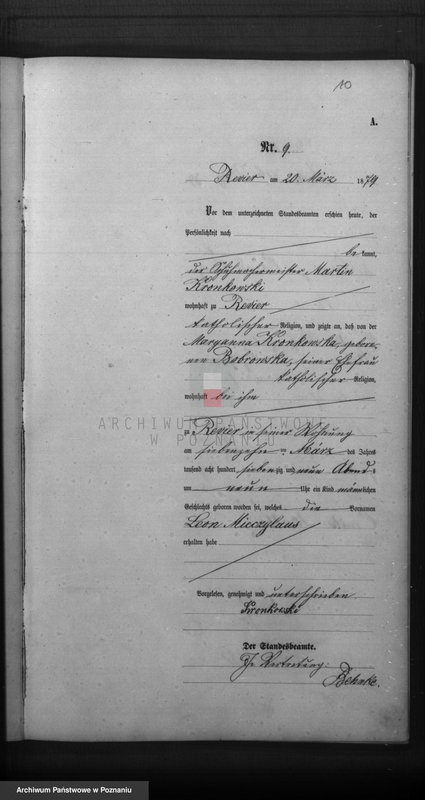 10
A.
Nr. 9.
Revier am 20. März 1879
Vor dem unterzeichneten Standesbeamten erschien heute, der
Persönlichkeit nach
be kannt,
der Schuhmachermeister Martin
Kronkowski
wohnhaft zu Revier
katholischer Religion, und zeigte an, daß von der
Maryanna Kronkowska, gebore-
nen Bobrowska, seiner Ehefrau
katholischer Religion,
wohnhaft bei ihm
ARCHIWUM PAŃSTWOWE
W POZNANIU
zu Revier in seiner Wohnung
am siebenzehn ten März des Jahres
tausend acht hundert siebenzig und neun Abends
um neun Uhr ein Kind männlichen
Geschlechts geboren worden sei, welches die Vornamen
Leon Mieczylaus
erhalten habe
Vorgelesen, genehmigt und unterschrieben
Kronkowski
Der Standesbeamte.
In Vertretung:
Behnke.
Archiwum Państwowe w Poznaniu